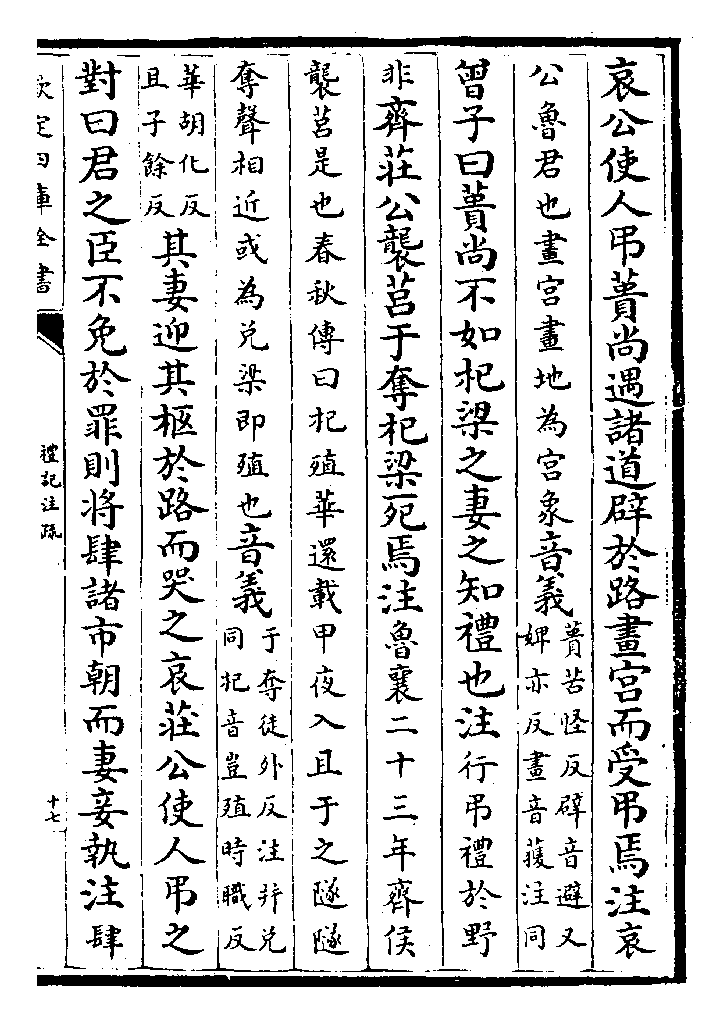 哀公使人弔蕢尚遇諸道辟於路畫宫而受弔焉注哀
公魯君也畫宫畫地為宫象音義蕢苦怪反辟音避又
婢亦反畫音䕶注同
曾子曰蕢尚不如杞梁之妻之知禮也注行弔禮於野
非齊莊公襲莒于奪杞梁死焉注魯襄二十三年齊侯
襲莒是也春秋傳曰杞殖華還載甲夜入且于之隧隧
奪聲相近或為兊梁即殖也音義于奪徒外反注并兊
同杞音豈殖時職反
華胡化反
且子餘反其妻迎其柩於路而哭之哀莊公使人弔之
對曰君之臣不免於罪則將肆諸市朝而妻妾執注肆
欽定四庫全書
禮記注疏
十七